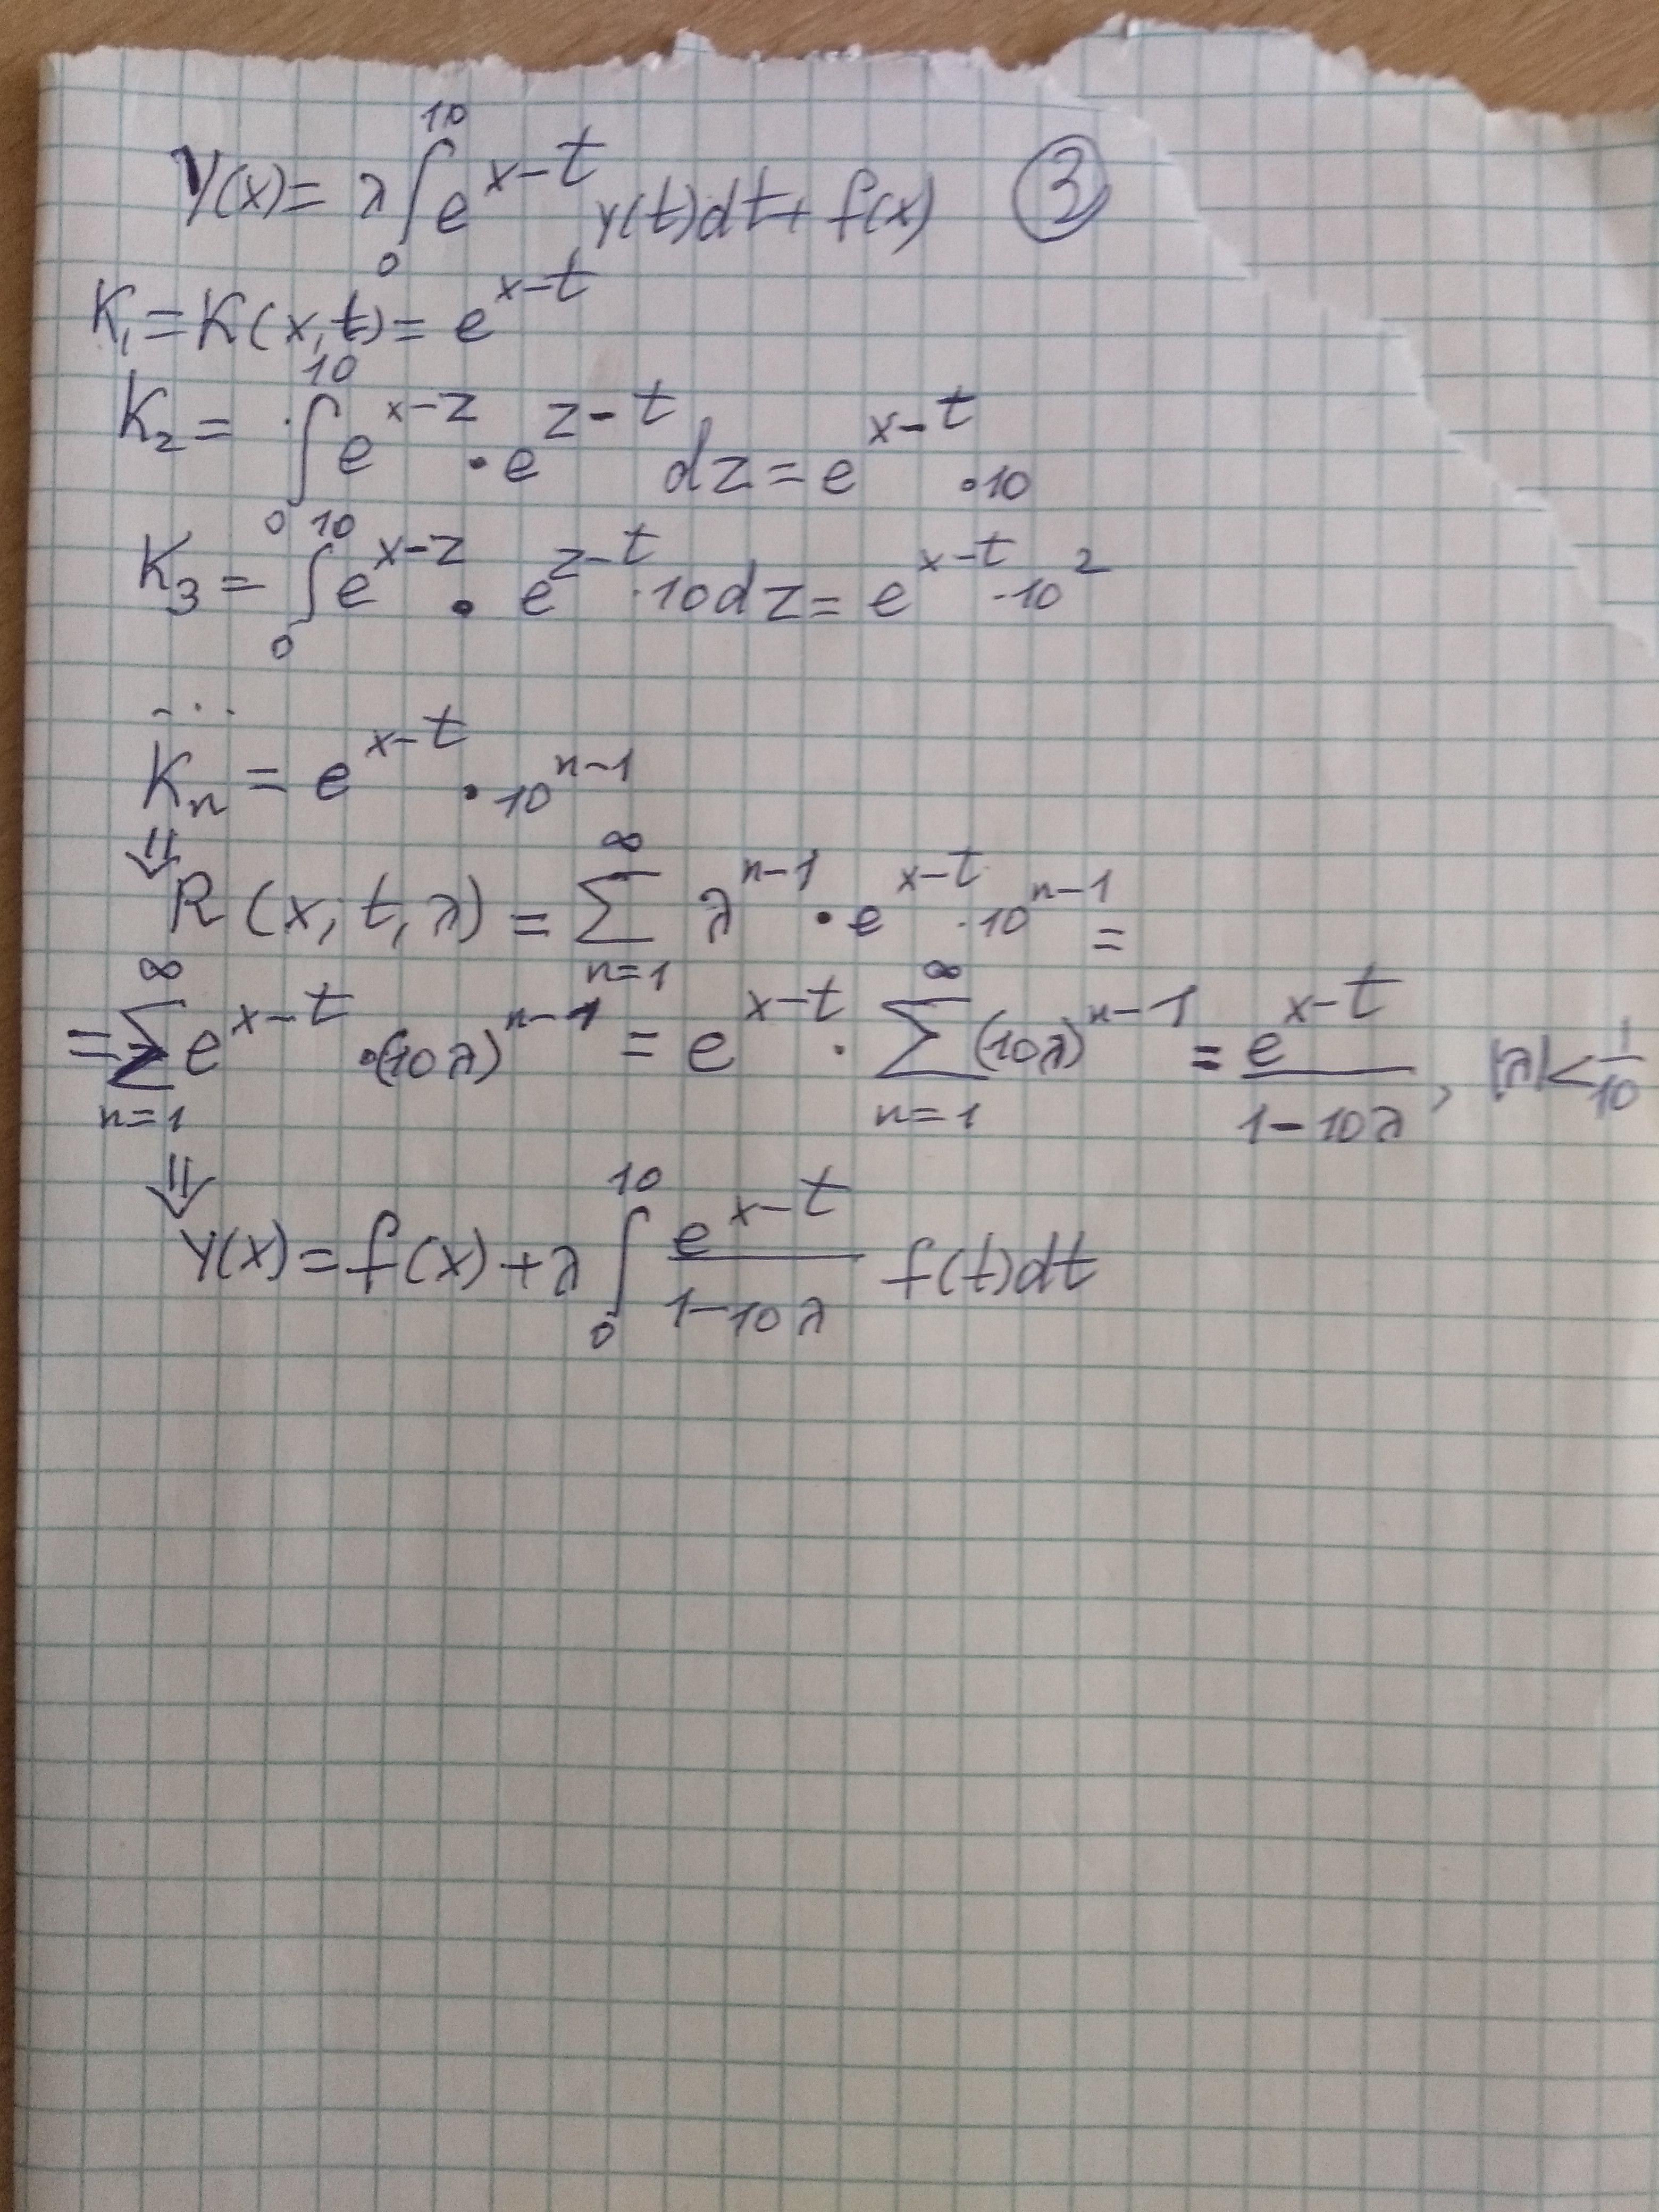 y(x) = λ∫₀¹⁰ e^(x-t) y(t)dt + f(x) ③
K₁ = K(x,t) = e^(x-t)
K₂ = ∫₀¹⁰ e^(x-z) · e^(z-t) dz = e^(x-t) · 10
K₃ = ∫₀¹⁰ e^(x-z) · e^(z-t) · 10dz = e^(x-t) · 10²
...
Kₙ = e^(x-t) · 10^(n-1)
⇓
R(x,t,λ) = ∑_(n=1)^∞ λ^(n-1) · e^(x-t) · 10^(n-1) =
= ∑_(n=1)^∞ e^(x-t) · (10λ)^(n-1) = e^(x-t) · ∑_(n=1)^∞ (10λ)^(n-1) = e^(x-t)/(1-10λ), |λ|<1/10
⇓
y(x) = f(x) + λ∫₀¹⁰ e^(x-t)/(1-10λ) f(t)dt